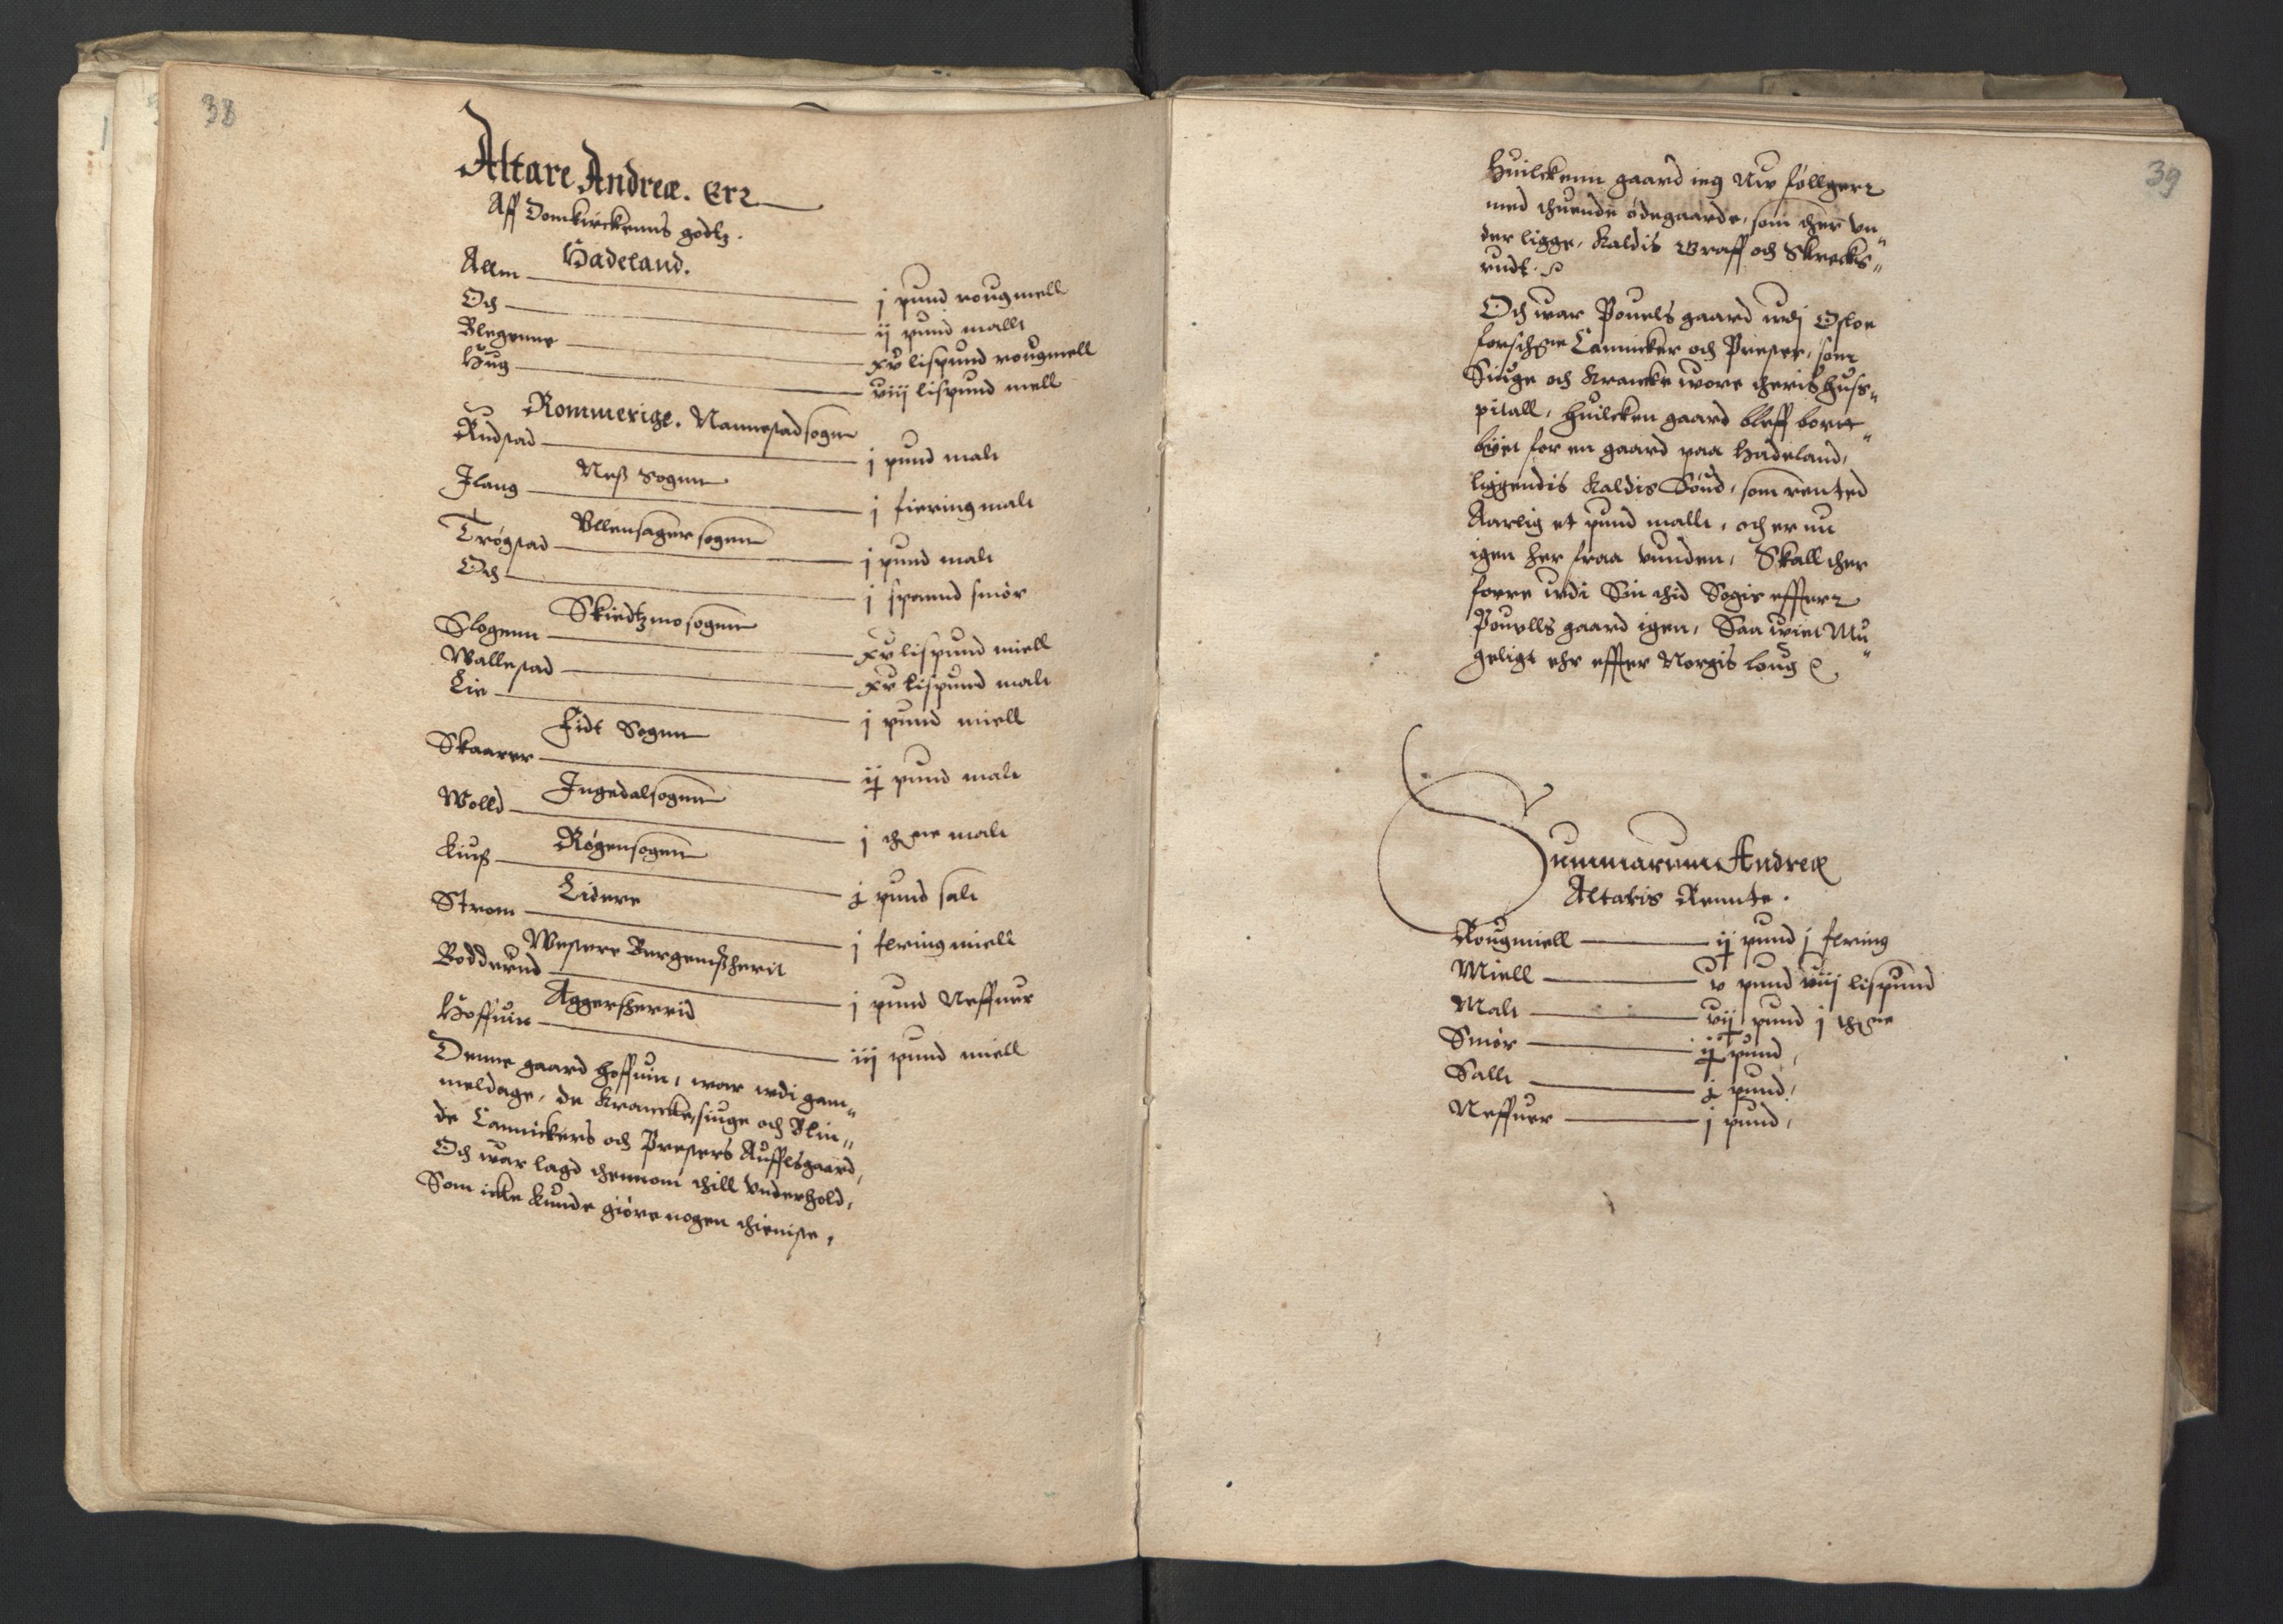 38
Altare Andreæ. Er
Aff Domkirckenns godtz.
Hadeland.
Allm j pund rougmell
Och ij pund mallt
Blegenne xv lispund rougmell
Hug viij lispund mell
Rommerige. Nannestad sogn
Rudstad j pund malt
Neß Sognn
Ilang j fiering malt
Ullensager sognn
Trøgstad j pund malt
Och j spannd smør
Skiedtzmo sognn
Slogenn xv lispund miell
Wallestad xv lispund malt
Lie j pund miell
Fidt Sognn
Skaarer ij pund malt
Ingedal sognn
Wolld j malt
Røgen sognn
Kiuß j pund salt
Lidere
Strøm j fering miell
Westere Bergemßherit
Bodderud j pund Neffuer
Aggersherrid
Hoffuin iij pund miell
Denne gaard hoffuin, war udi gam„
meldage, de Kranncke, siuge och Blin„
de Cannickers och Presters Aufflsgaard,
Och war lagd thennom thill Underhold,
Som icke kunde giøre nogen thieniste,
39
Huilckenn gaard ieg Nu føllger
med thuende ødegaarde, som ther un„
der ligge, Kaldis Graff och Skrecks„
rudt.
Och war Pouels gaard udj Osloe
forschne Cannicker och Prester, som
Siuge och Krancke wore theris huss„
pitall, huilcken gaard bleff bortt„
byet for en gaard paa Hadeland,
liggendis Kaldis Sønd, som rented
Aarlig et pund mallt, och er nu
igen her fraa vunden, Skall ther
forre udi Sin thid Søgis effter
Pouells gaard igen, Saa wiet Mu„
geligt ehr effter Norgis loug
Summarum Andreæ
Altaris Rennte.
Rougmiell ij pund j fering
Miell v pund viij lispund
Malt vij pund j
Smør ij pund,
Sallt j pund,
Neffuer j pund,